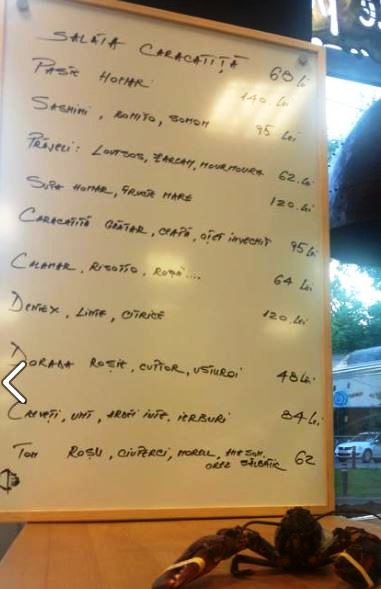 SALATA CARACATIȚĂ 68 lei
PASTE HOMAR 140 lei
SASHIMI, ROMITO, SOMON 95 lei
PRĂJELI: LOUTSOS, ZARGAN, MOURMOURA 62 lei
SUPA HOMAR, FRUCTE MARE 120 lei
CARACATIȚĂ GRĂTAR, CEAPĂ, OȚET ÎNVECHIT 95 lei
CALAMAR, RISOTTO, ROȘII.... 64 lei
DENTEX, LINTE, CITRICE 120 lei
DORADA ROȘIE, CUPTOR, USTUROI 48 lei
CREVEȚI, UNT, ARDEI IUTE, IERBURI 84 lei
TON ROȘU, CIUPERCI, MOREL, 62
OREZ SĂLBATIC